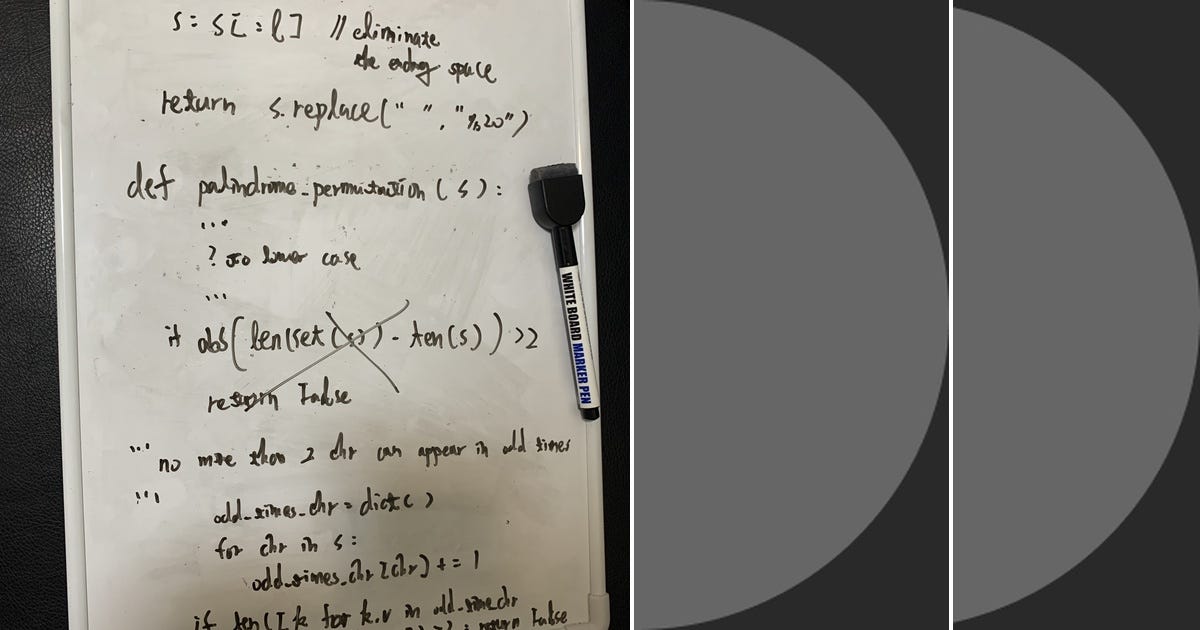 s = s[:l] // eliminate
the ending space
return s.replace(" ", "%20")
def palindrome_permutation(s):
'''
? to lower case
'''
if abs(len(set(s)) - len(s)) >2
return False
''' no more than 2 chr can appear in odd times
'''
odd_times_chr = dict()
for chr in s:
odd_times_chr[chr] += 1
if len([k for k.v in odd_times_chr
return False
WHITE BOARD MARKER PEN